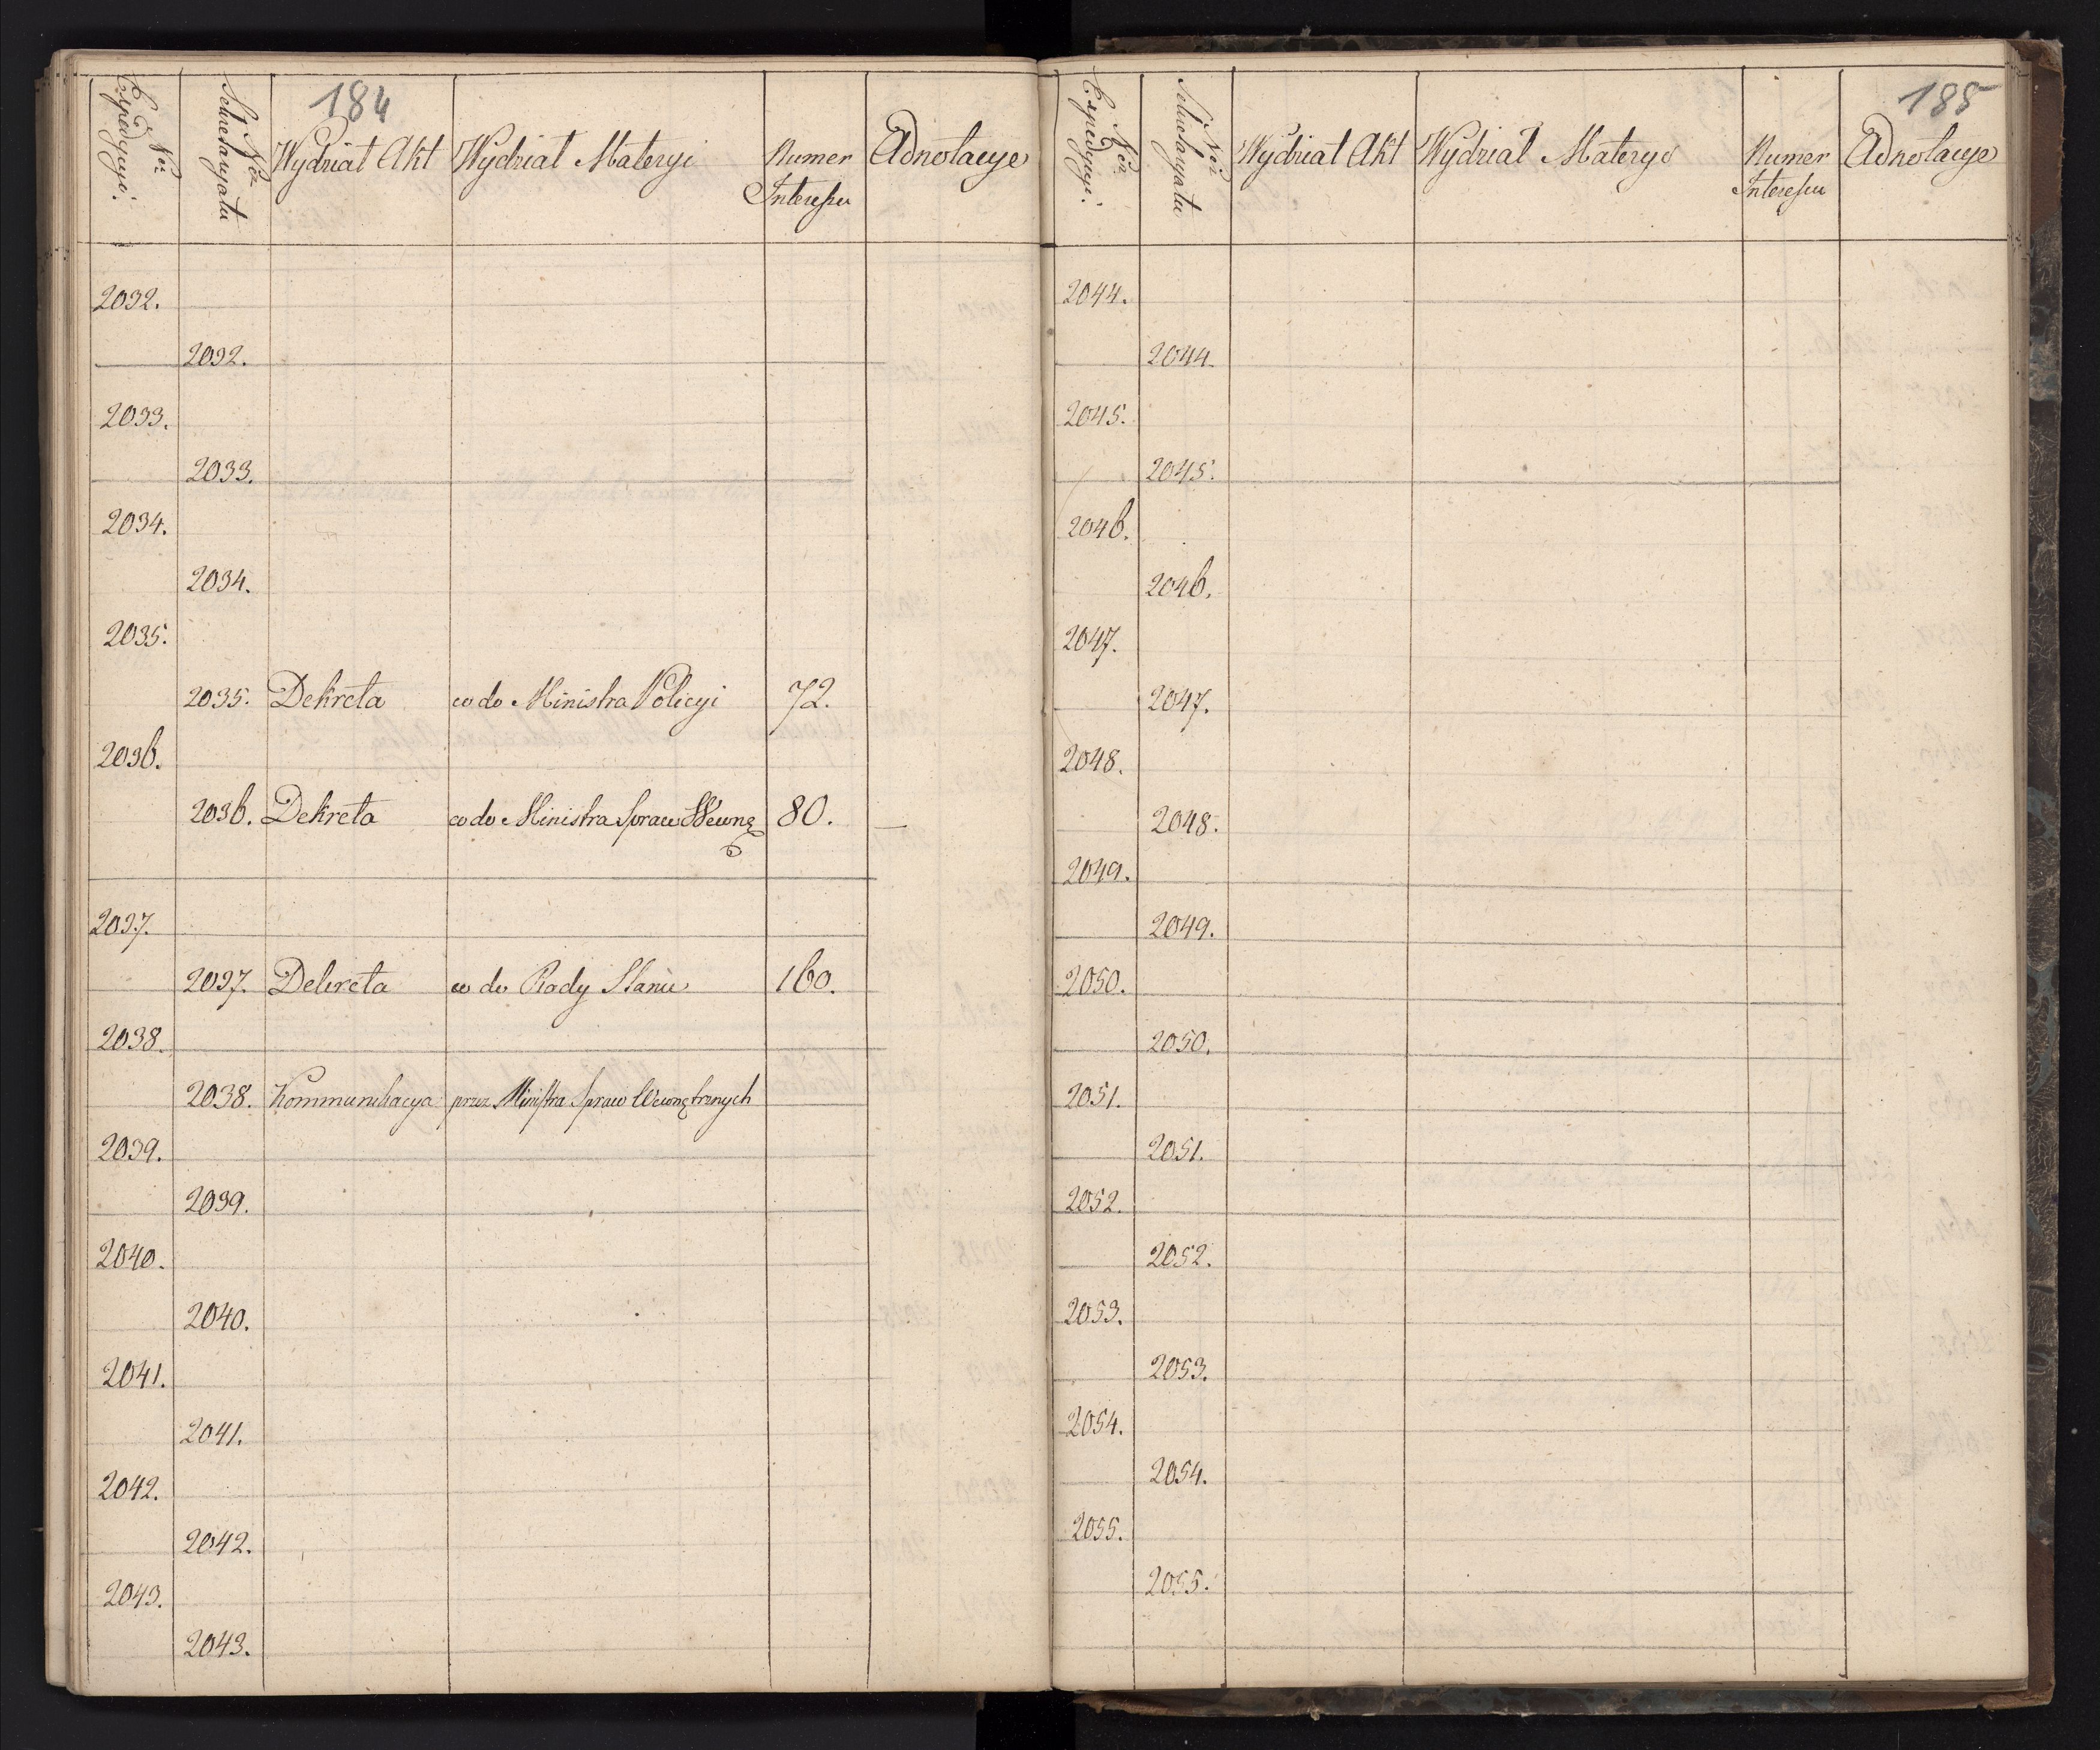 184
Nor Expedycyi:
Nor Sekretaryatu
Wydział Akt
Wydział Materyi
Numer Interessu
Adnotacye
2032.
2032.
2033.
2033.
2034.
2034.
2035.
2035. Dekreta co do Ministra Policyi 72.
2036.
2036. Dekreta co do Ministra Spraw Wewnę 80. —
2037.
2037. Dekreta co do Rady Stanu 160.
2038.
2038. Kommunikacya przez Ministra Spraw Wewnętrznych
2039.
2039.
2040.
2040.
2041.
2041.
2042.
2042.
2043.
2043.
185
Nor Expedycyi:
Nor Sekretaryatu
Wydział Akt
Wydział Materyi
Numer Interessu
Adnotacye
2044.
2044.
2045.
2045.
2046.
2046.
2047.
2047.
2048.
2048.
2049.
2049.
2050.
2050.
2051.
2051.
2052.
2052.
2053.
2053.
2054.
2054.
2055.
2055.